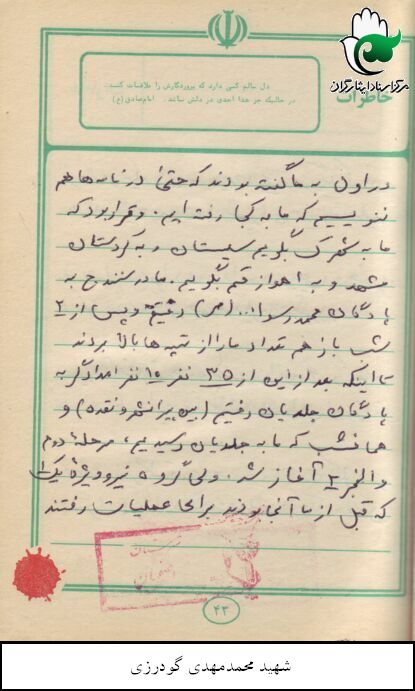 مرکز اسناد ایثارگران
خاطرات
دل سالم کسی دارد که پروردگارش را ملاقات کند
در حالیکه جز خدا احدی در دلش نباشد. امام صادق (ع)
در اول به ما گفته بودند که حتی در نامه ها هم
ننویسیم که ما به کجا رفته ایم. و قرار بود که
ما به شهرک بگوییم سیستان و به کردستان
مشهد و به اهواز قم بگوییم. ما در سنندج به
پادگان محمد رسول ا... (ص) رفتیم و پس از ۲
شب باز هم تعداد ما را از تیپ ها بالا بردند
تا اینکه بعد از این از ۳۵ نفر ۱۵ نفر امدادگر به
پادگان جلدیان رفتیم (بین پیرانشهر و نقده) و
همانشب که ما به جلدیان رسیدیم، مرحلهٔ دوم
والفجر ۲ آغاز شد. ولی گروه نیرو ویژهٔ یک
که قبل از ما آنجا بودند برای عملیات رفتند
۴۳
شهید محمدمهدی گودرزی